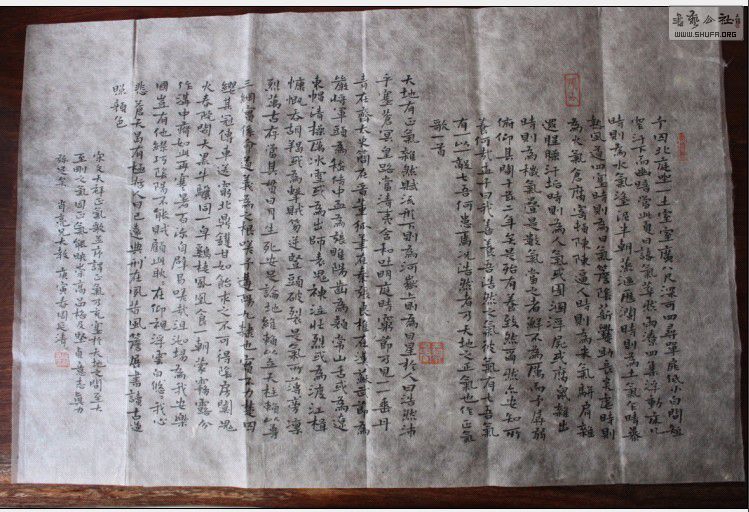 书艺公社
WWW.SHUFA.ORG
予囚北庭坐一土室室廣八尺深可四尋單扉低小白間短
窄汙下而幽暗當此夏日諸氣萃然雨潦四集浮動床几
時則為水氣塗泥半朝蒸漚歷瀾時則為土氣乍晴暴
熱風道四塞時則為日氣簷陰薪爨助長炎虐時則
為火氣倉腐寄頓陳陳逼人時則為米氣駢肩雜
遝腥臊汗垢時則為人氣或圊溷浮屍或腐鼠雜出
時則為穢氣疊是數氣當之者鮮不為厲而予以孱弱
俯仰其間于茲二年矣是殆有養致然爾然亦安知所
養何哉孟子曰我善養吾浩然之氣彼氣有七吾氣
有一以一敵七吾何患焉況浩然者乃天地之正氣也作正氣
歌一首
天地有正氣雜然賦流形下則為河嶽上則為日星於人曰浩然沛
乎塞蒼冥皇路當清夷含和吐明庭時窮節乃見一一垂丹
青在齊太史簡在晉董狐筆在秦張良椎在漢蘇武節為
嚴將軍頭為嵇侍中血為張睢陽齒為顏常山舌或為遼
東帽清操厲冰雪或為出師表鬼神泣壯烈或為渡江楫
慷慨吞胡羯或為擊賊笏逆豎頭破裂是氣所磅礴凜
烈萬古存當其貫日月生死安足論地維賴以立天柱賴以尊
三綱實係命道義為之根嗟予遘陽九隸也實不力楚囚
纓其冠傳車送窮北鼎鑊甘如飴求之不可得陰房闃鬼
火春院閟天黑牛驥同一皁雞棲鳳凰食一朝蒙霧露分
作溝中瘠如此再寒暑百沴自辟易嗟哉沮洳場為我安樂
國豈有他繆巧陰陽不能賊顧此耿耿在仰視浮雲白悠悠我心
悲蒼天曷有極哲人日已遠典刑在夙昔風簷展書讀古道
照顏色
宋文天祥正氣歌並序 正氣乃充塞於天地間至大
至剛之氣